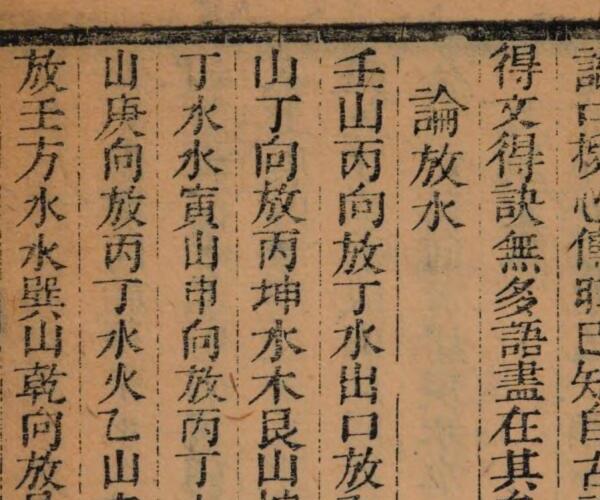 心傳取已知自古
得文得訣無多語盡在其
論放水
壬山丙向放丁水出口放
山丁向放丙坤水木艮山
丁水水寅山申向放丙丁
山庚向放丙丁水火乙山
放壬方水水巽山乾向放